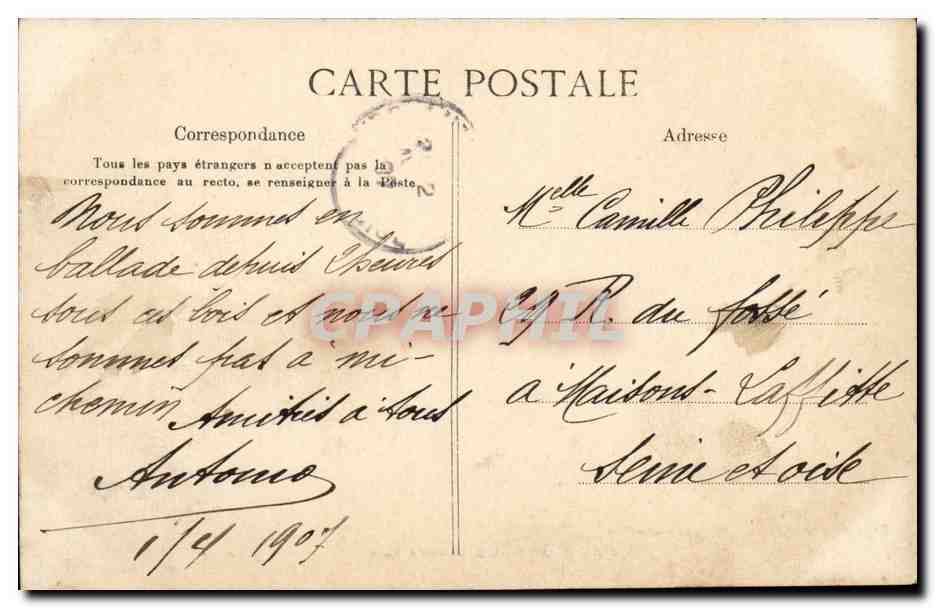 CARTE POSTALE
Correspondance
Tous les pays étrangers n acceptent pas la
correspondance au recto, se renseigner à la Poste
Nous sommes en
ballade depuis 2 heures
sous ces bois et nous ne
sommes pas à mi-
chemin Amitiés à tous
Antonio
1/4 1907
Adresse
Melle Camille Philippe
29 R. du fossé
à Maisons-Laffitte
Seine et oise
CPAPHIL